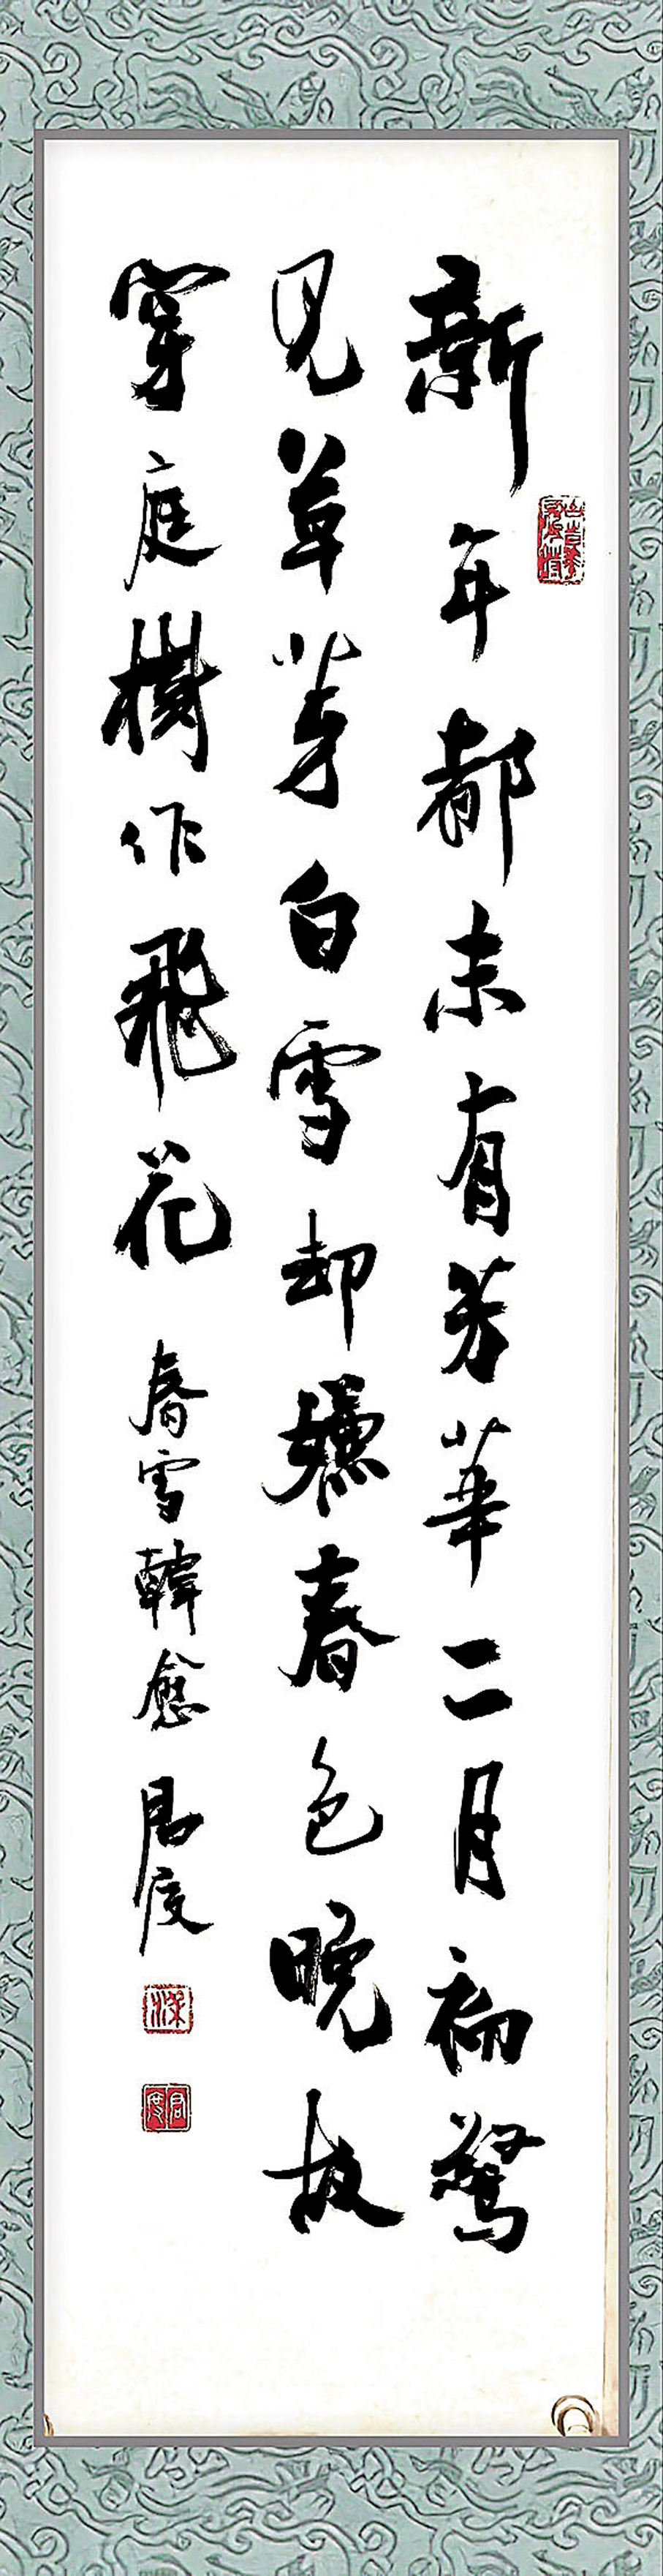 新年都未有芳華二月初驚
見草芽白雪却嫌春色晚故
穿庭樹作飛花 春雪韓愈 君度
君度